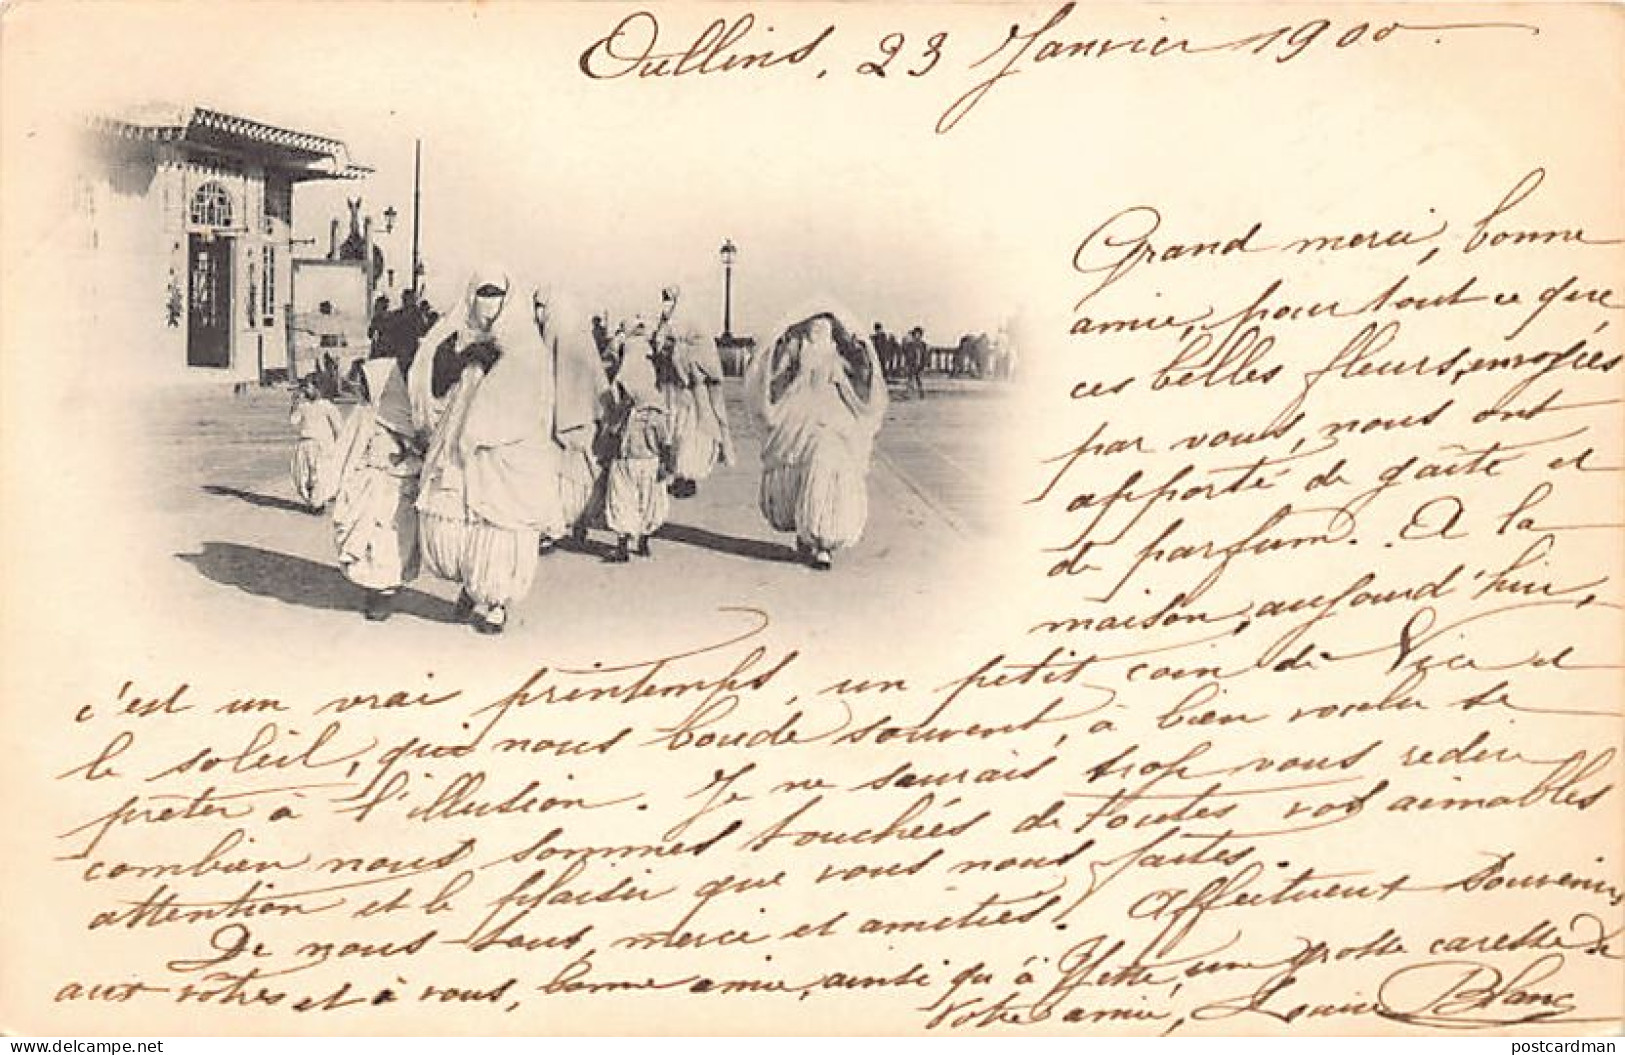 Oullins, 23 Janvier 1900.
Grand merci, bonne
amie, pour tout ce que
ces belles fleurs, envoyées
par vous, nous ont
apporté de gaîté et
de parfum. A la
maison, aujourd'hui,
c'est un vrai printemps, un petit coin de Nice et
le soleil, qui nous boude souvent, à bien voulu se
prêter à l'illusion. Je ne saurais trop vous redire
combien nous sommes touchées de toutes vos aimables
attention et le plaisir que vous nous faites.
De nous tous, merci et amitiés. Affectueux souvenirs
aux vôtres et à vous, bonne amie, ainsi qu'à Yette, une grosse caresse de
Votre amie, Louise Blanc
postcardman